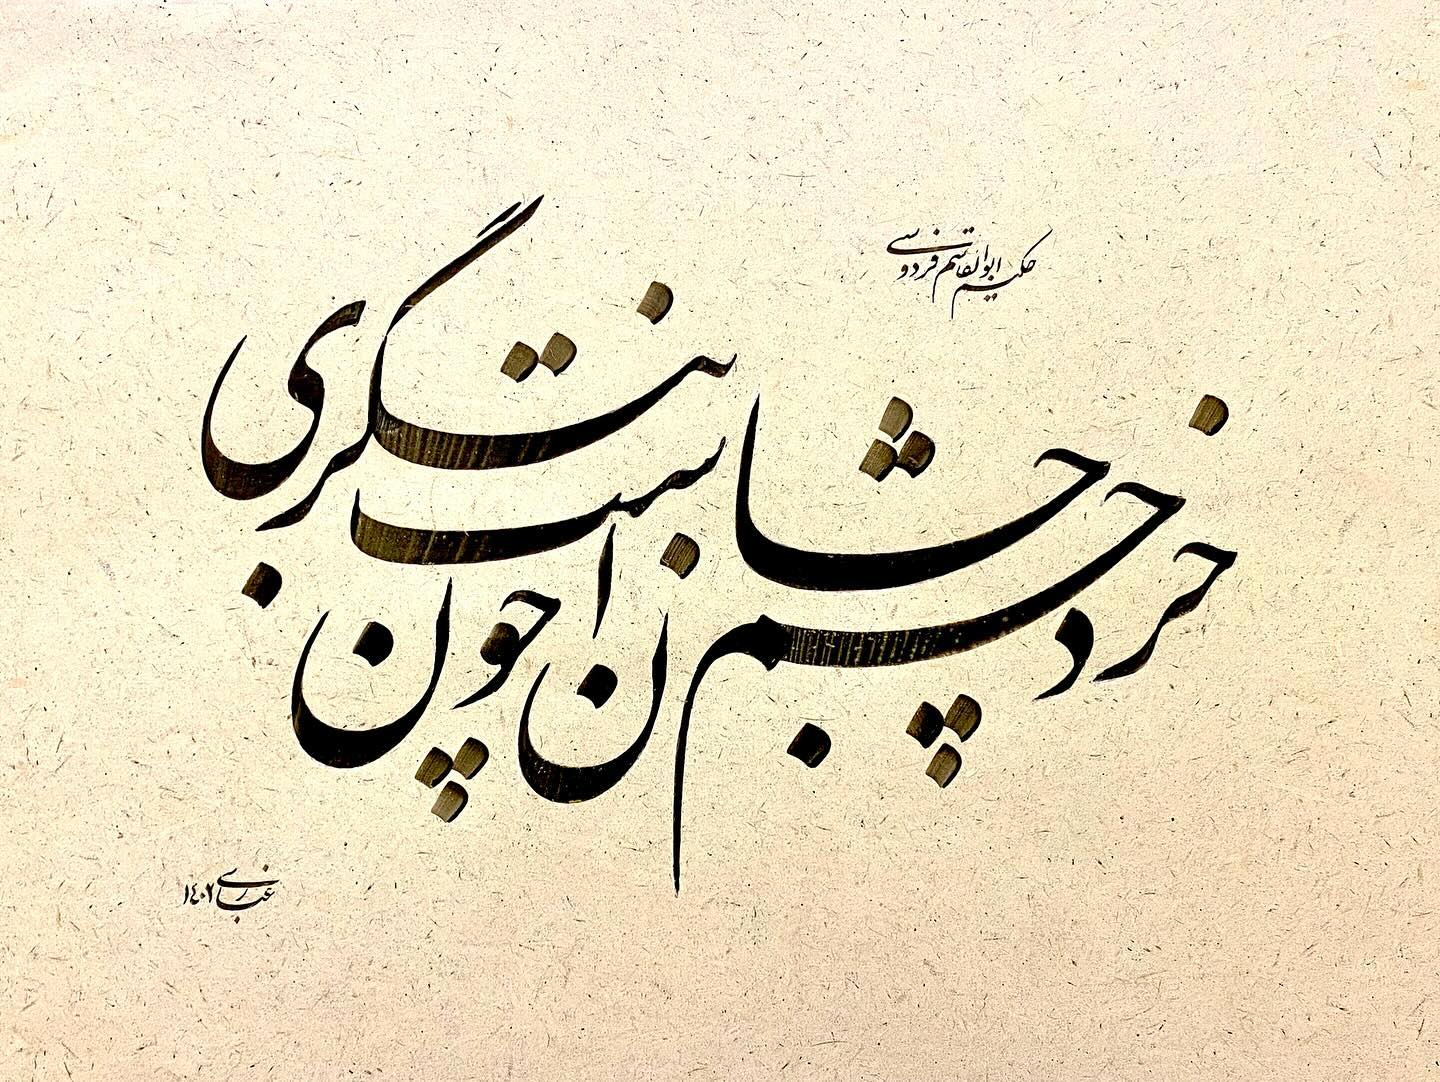 حکیم ابوالقاسم فردوسی
خرد چشم جان است چون بنگری
غباری ۱۴۰۲